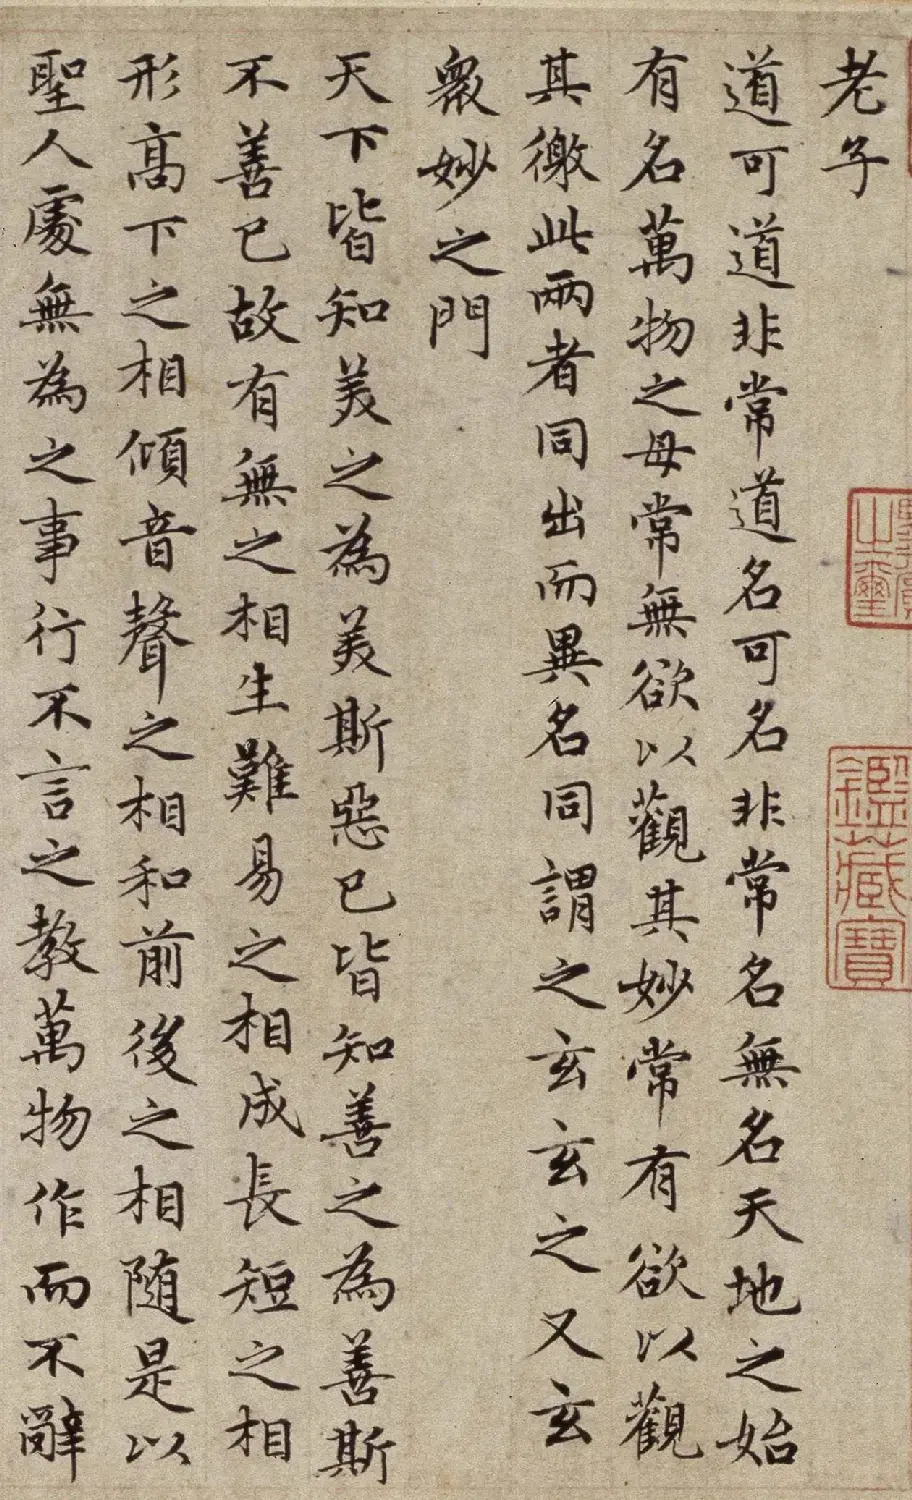 老子
道可道非常道名可名非常名無名天地之始
有名萬物之母常無欲以觀其妙常有欲以觀
其徼此兩者同出而異名同謂之玄玄之又玄
衆妙之門
天下皆知美之為美斯惡已皆知善之為善斯
不善已故有無之相生難易之相成長短之相
形高下之相傾音聲之相和前後之相随是以
聖人處無為之事行不言之教萬物作而不辭
之璽
鑑藏寶